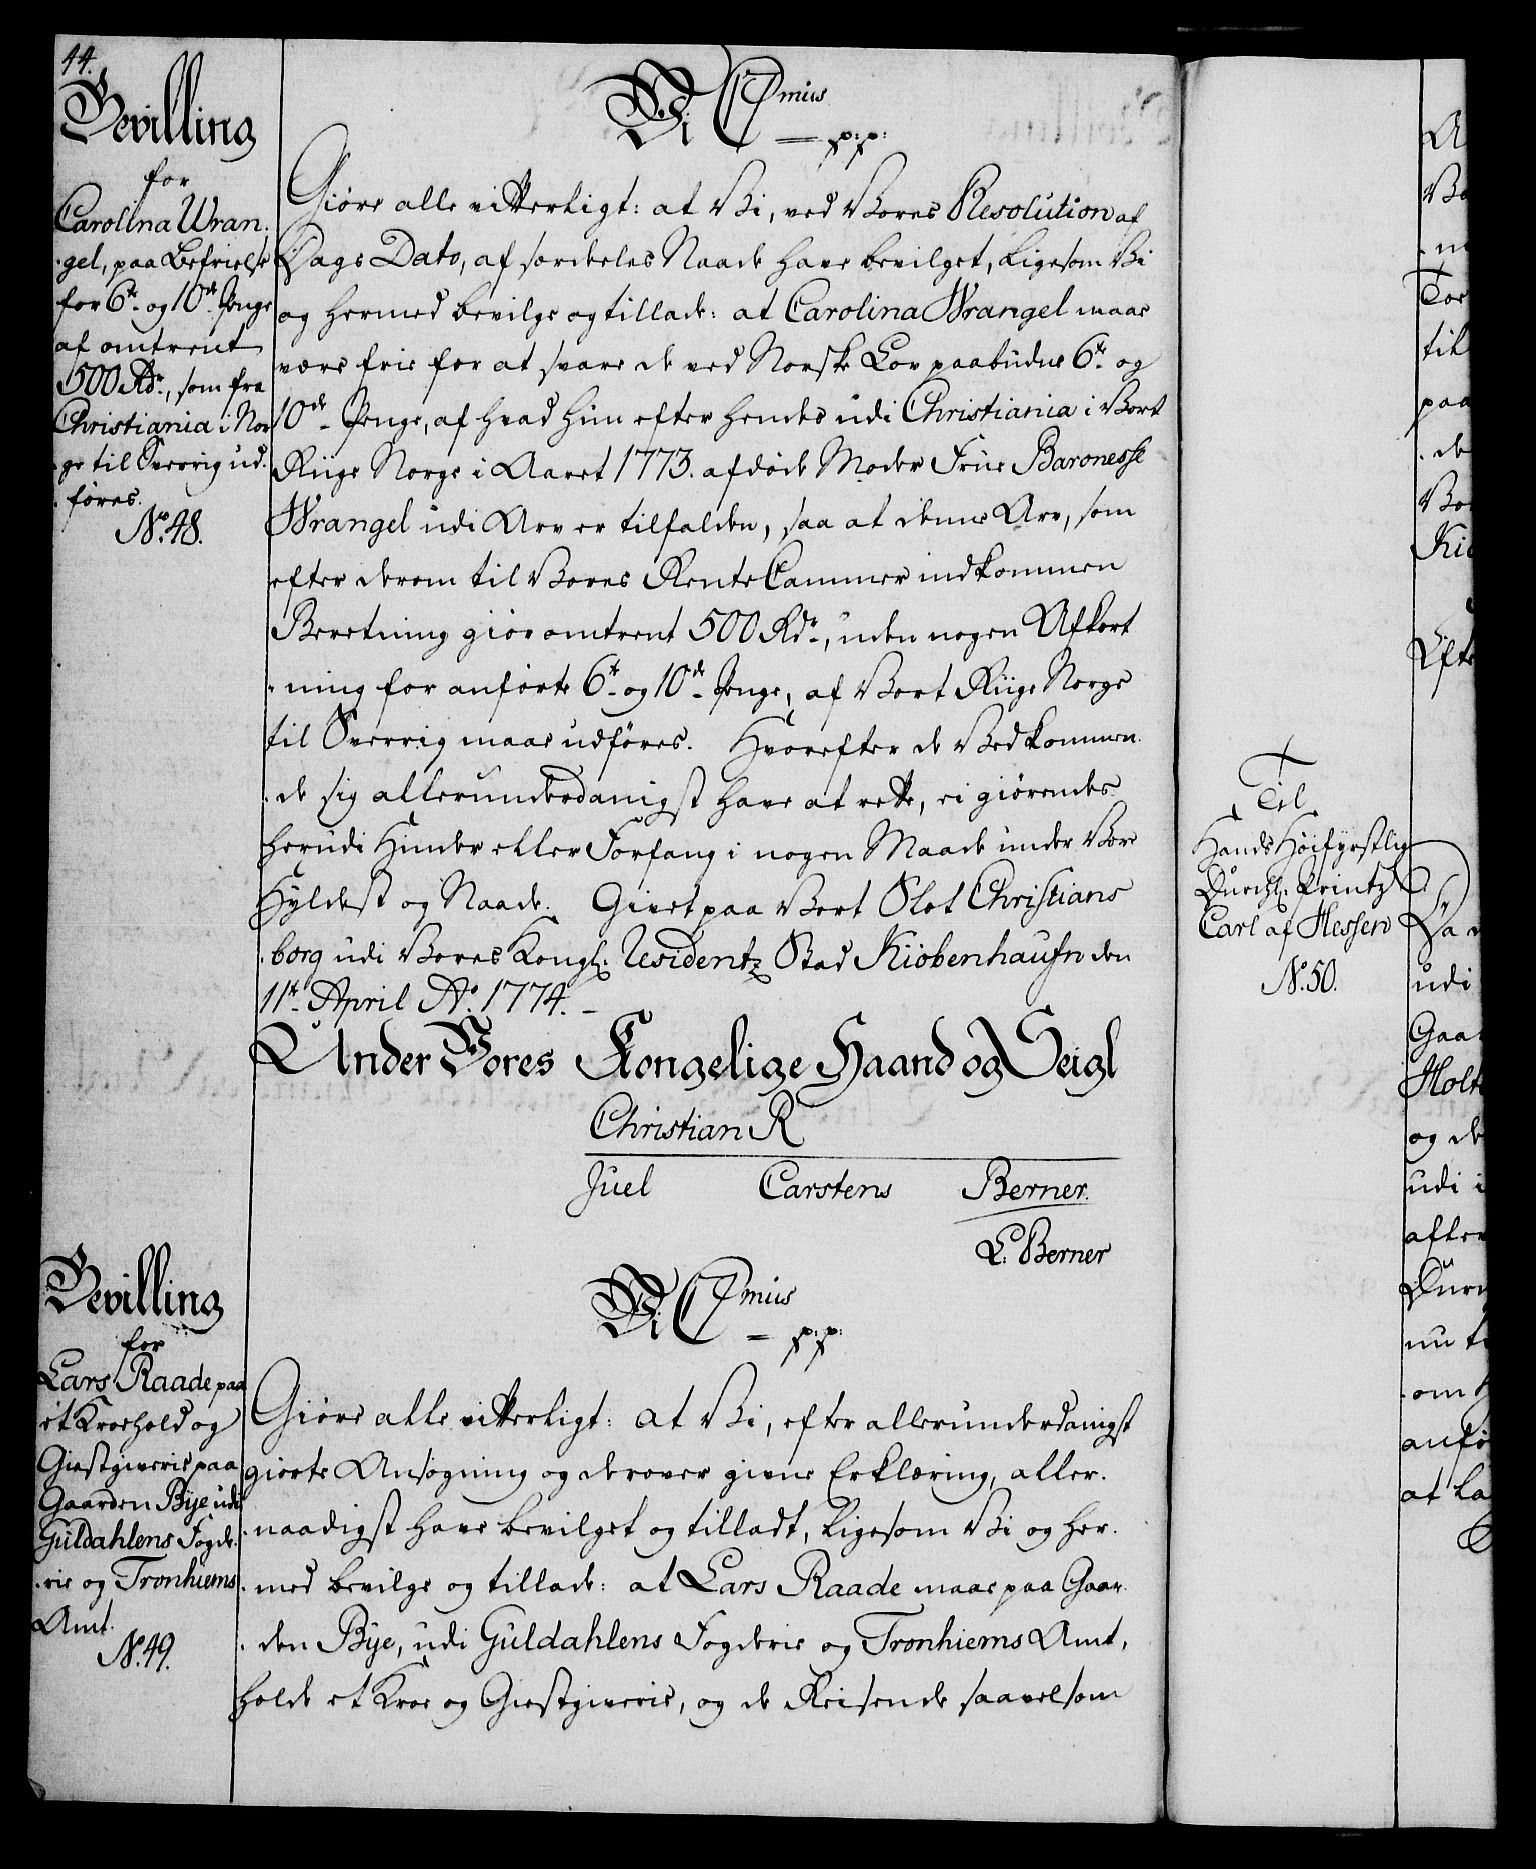 44.
Bevilling
for
Carolina Wran-
-gel, paa Befrielse
for 6te og 10de Penge
af omtrent
500 Rdr, som fra
Christiania i Nor
ge til Sverrig ud-
føres.
No. 48.
Vi C 7mus
p: p:
Giøre alle vitterligt: at Vi, ved Vores Resolution af
Dags Dato, af særdeles Naade have bevilget, ligesom Vi
og hermed bevilge og tillade: at Carolina Wrangel maae
være frie for at svare de ved Norske Lov paabudne 6te og
10de Penge, af hvad hun efter hendes udi Christiania i Vort
Riige Norge i Aaret 1773. afdøde Moder Frue Baronesse
Wrangel udi Arv er tilfalden, saa at denne Arv, som
efter derom til Vores RenteCammer indkommen
Beretning giør omtrent 500 Rdr, uden nogen Afkort
-ning for anførte 6te og 10de Penge, af Vort Riige Norge
til Sverrig maae udføres. Hvorefter de Vedkommen-
-de sig allerunderdanigst have at rette, ei giørendes
herudi Hinder eller Forfang i nogen Maade under Vor
Hyldest og Naade. Givet paa Vort Slot Christians
-borg udi Vores Kongl: Residentz Stad Kiöbenhaufn den
11te April Ao. 1774.
Under Vores Kongelige Haand og Seigl
Christian R
Juel Carstens Berner.
L. Berner
Bevilling
for
Lars Raade paa
et Kroehold og
Giestgiverie paa
Gaarden Bye udi
Guldahlens Fogde-
-rie og Tronhiems
Amt.
No. 49.
Vi C 7mus
p: p:
Giøre alle vitterligt: at Vi, efter allerunderdanigst
giorte Ansøgning og derover givne Erklæring, aller-
-naadigst have bevilget og tilladt, ligesom Vi og her-
-med bevilge og tillade: at Lars Raade maae paa Gaar-
-den Bye, udi Guldahlens Fogderie og Tronhiems Amt,
holde et Kroe og Giestgiverie, og de Reisende saavelsom
Til
Hands Høifyrstlig
Durchl: Printz
Carl af Hessen
No. 50.